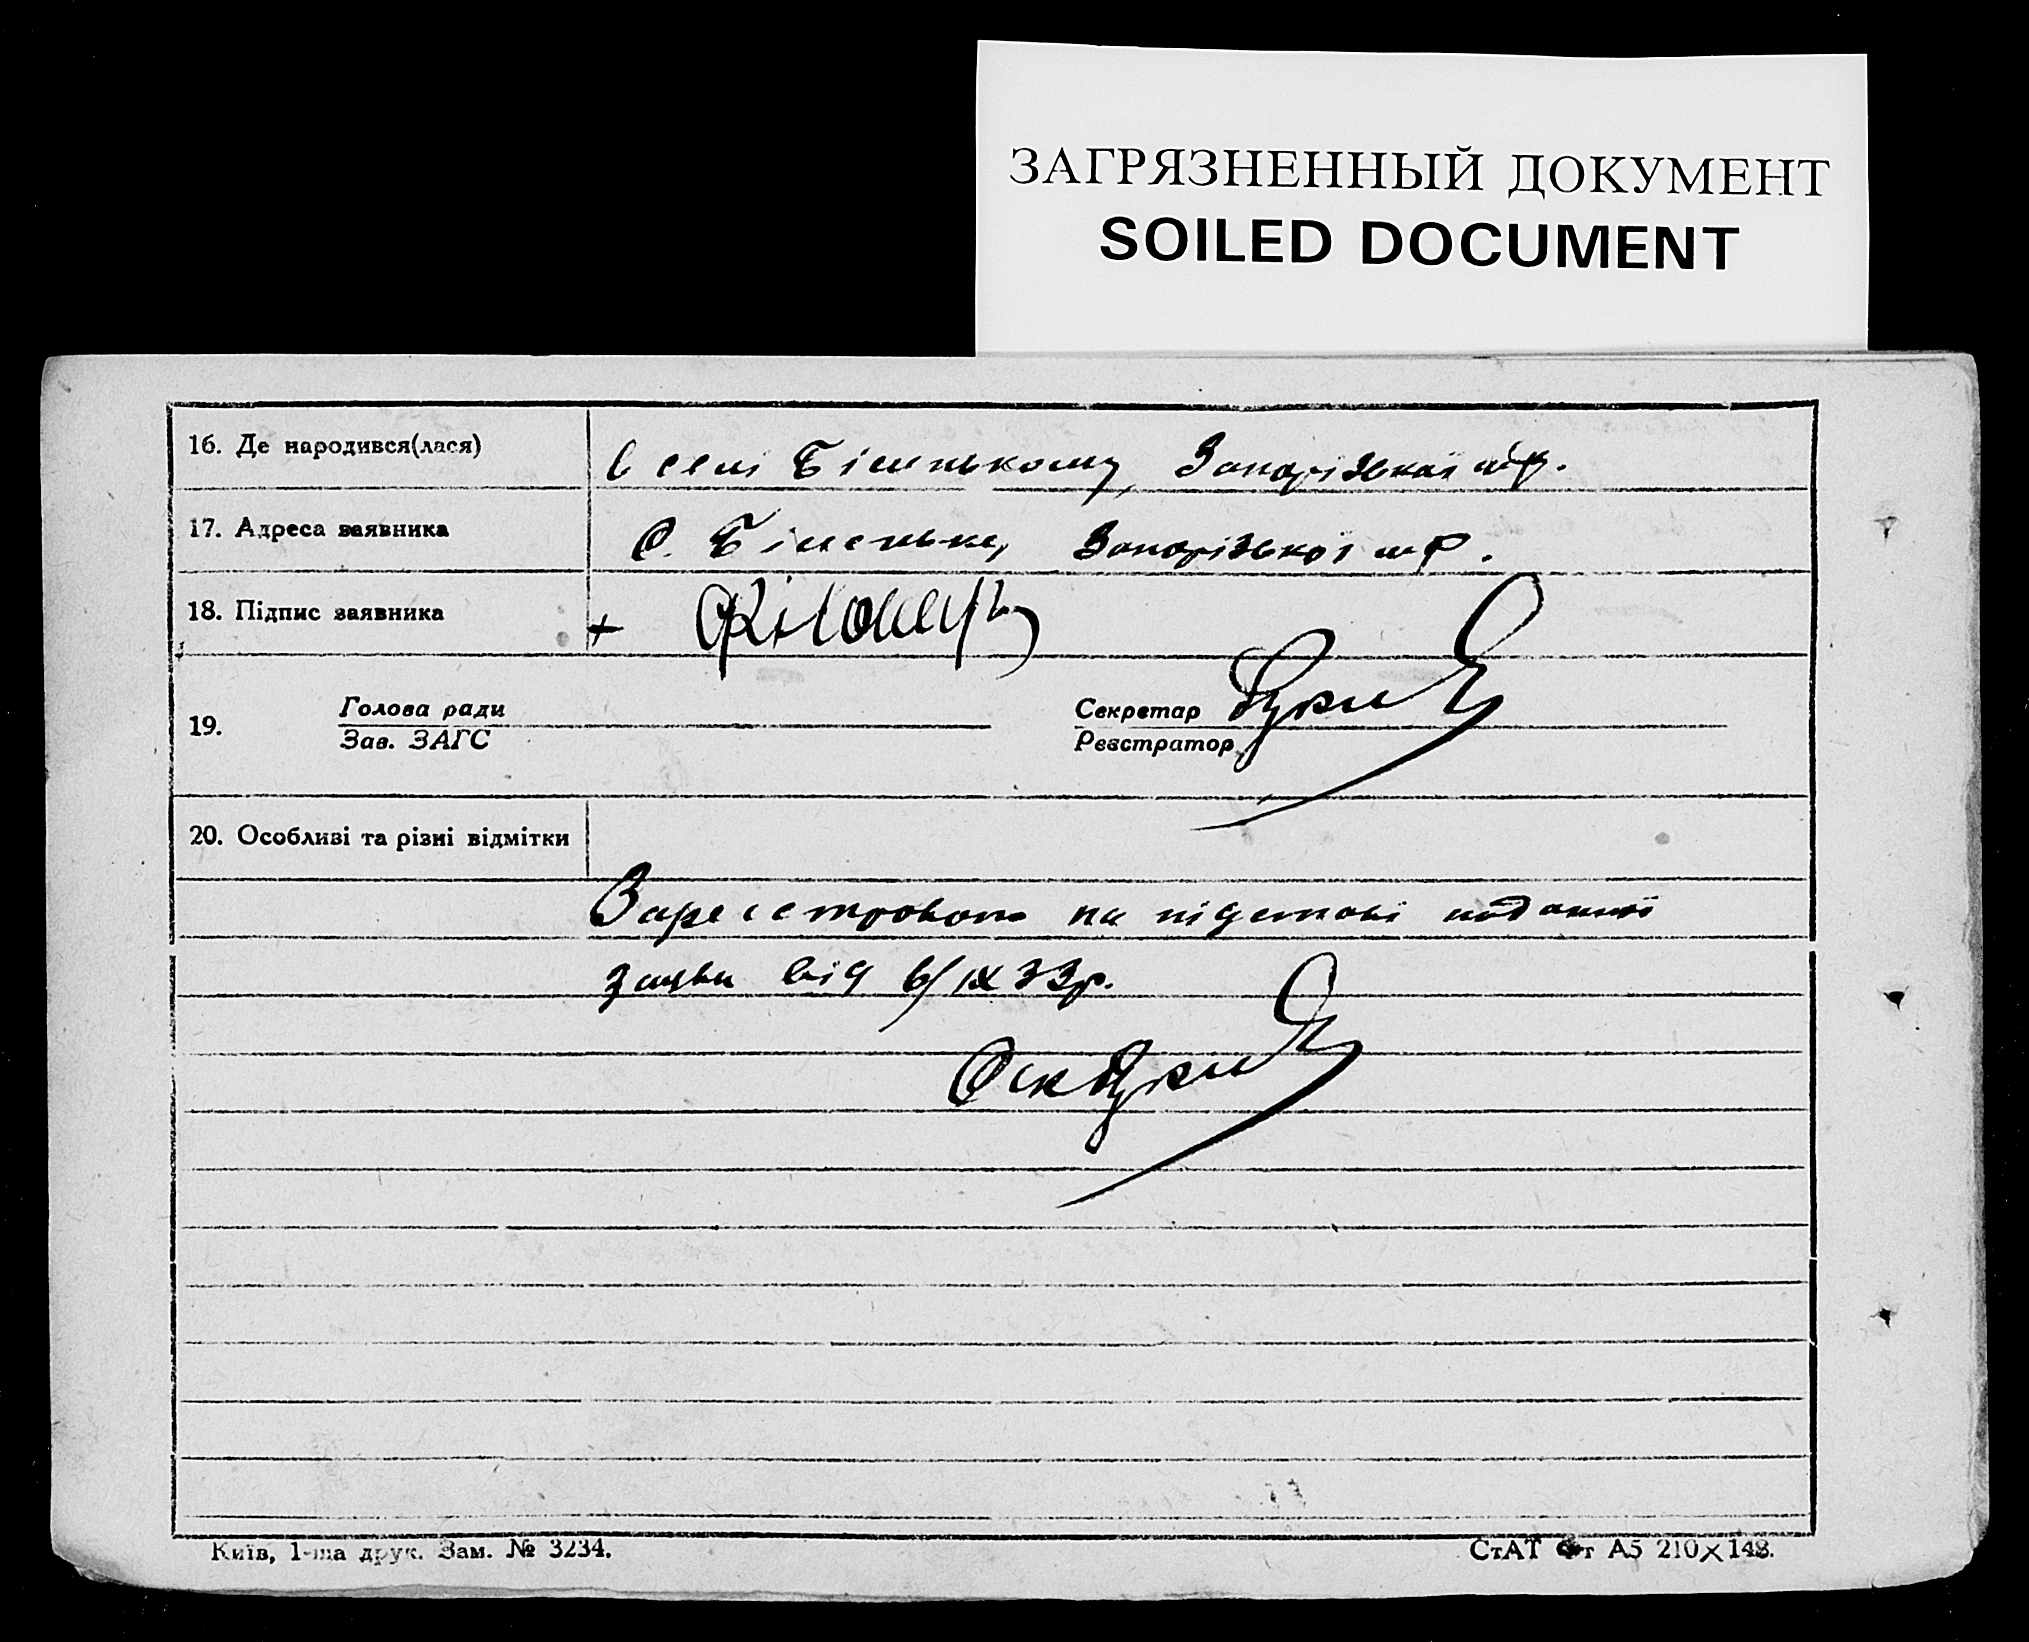 ЗАГРЯЗНЕННЫЙ ДОКУМЕНТ
SOILED DOCUMENT
16. Де народився(лася)
в селі Біленькому, Запорізької
17. Адреса заявника
С. Біленьке, Запорізької
18. Підпис заявника
+
19. Голова ради
Зав. ЗАГС
Секретар
Реєстратор
20. Особливі та різні відмітки
Зареєстровано на підставі поданої
заяви від 6/IX 33р.
Київ, 1-ша друк. Зам. № 3234.
СтАТ Фт А5 210×148.